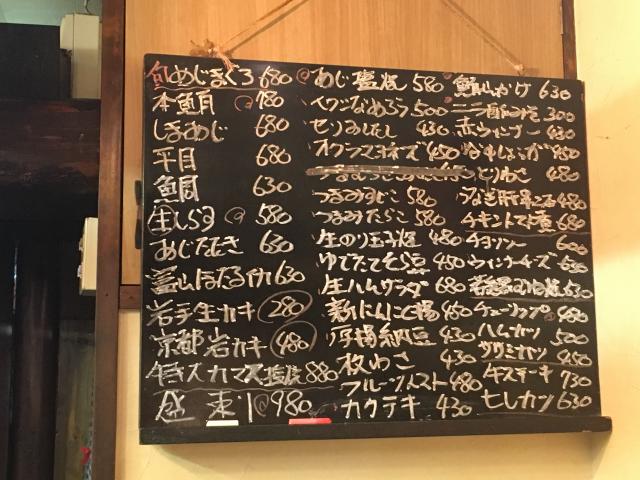 めじまぐろ 680
本鮪 780
しまあじ 680
平目 680
鯛 630
生しらす 580
あじたたき 630
富山ほたるいか 630
岩手生カキ 280
京都岩カキ 480
特大カマス塩焼 880
盛 980
あじ塩焼 580
イワシなめろう 500
セリおひたし 430
オクラマヨネーズ 450
つまみすじこ 580
つまみたらこ 580
生のり玉子焼 480
ゆでたてそら豆 450
生ハムサラダ 680
新にんにく揚 480
厚揚納豆 430
板わさ 430
フルーツトマト 480
カクテキ 430
鮪山かけ 630
300
赤ウィンナー 430
谷中しょうが 450
とりわさ 480
うなぎ肝 480
チキントマト煮 680
チョリソー 600
ウィンナーチーズ 530
530
480
ハムカツ 500
ササミカツ 450
牛ステーキ 730
ヒレカツ 630